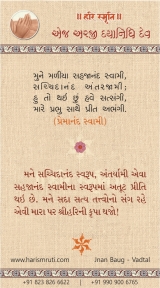 ॥ હરિ સ્મૃતિ ॥
એજ અરજી દયાનિધિ દેવ
મુને મળીયા સહજાનંદ સ્વામી,
સચ્ચિદાનંદ અંતરજામી;
હું તો થઈ છું હવે સત્સંગી,
મારે પ્રભુ સાથે પ્રીત અભંગી.
(પ્રેમાનંદ સ્વામી)
મને સચ્ચિદાનંદ સ્વરૂપ, અંતર્યામી એવા
સહજાનંદ સ્વામીના સ્વરૂપમાં અતૂટ પ્રીતિ
થઈ છે. મને સદા સત્ય તત્ત્વોનો સંગ રહે
એવી મારા પર શ્રીહરિની કૃપા થજો!
www.harismruti.com
Jnan Baug - Vadtal
+91 823 826 6622
+91 990 900 6765